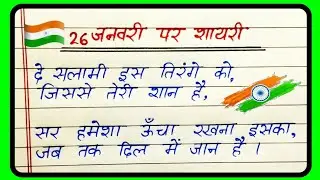 26 जनवरी पर शायरी
दे सलामी इस तिरंगे को,
जिससे तेरी शान है,
सर हमेशा ऊँचा रखना इसका,
जब तक दिल में जान है ।